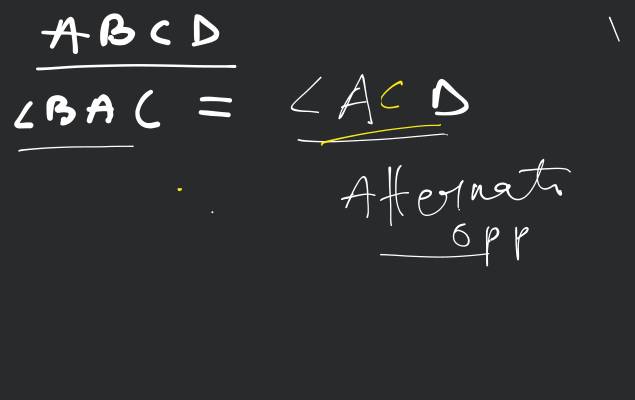 ABCD
∠BAC = ∠ACD
Alternate
opp